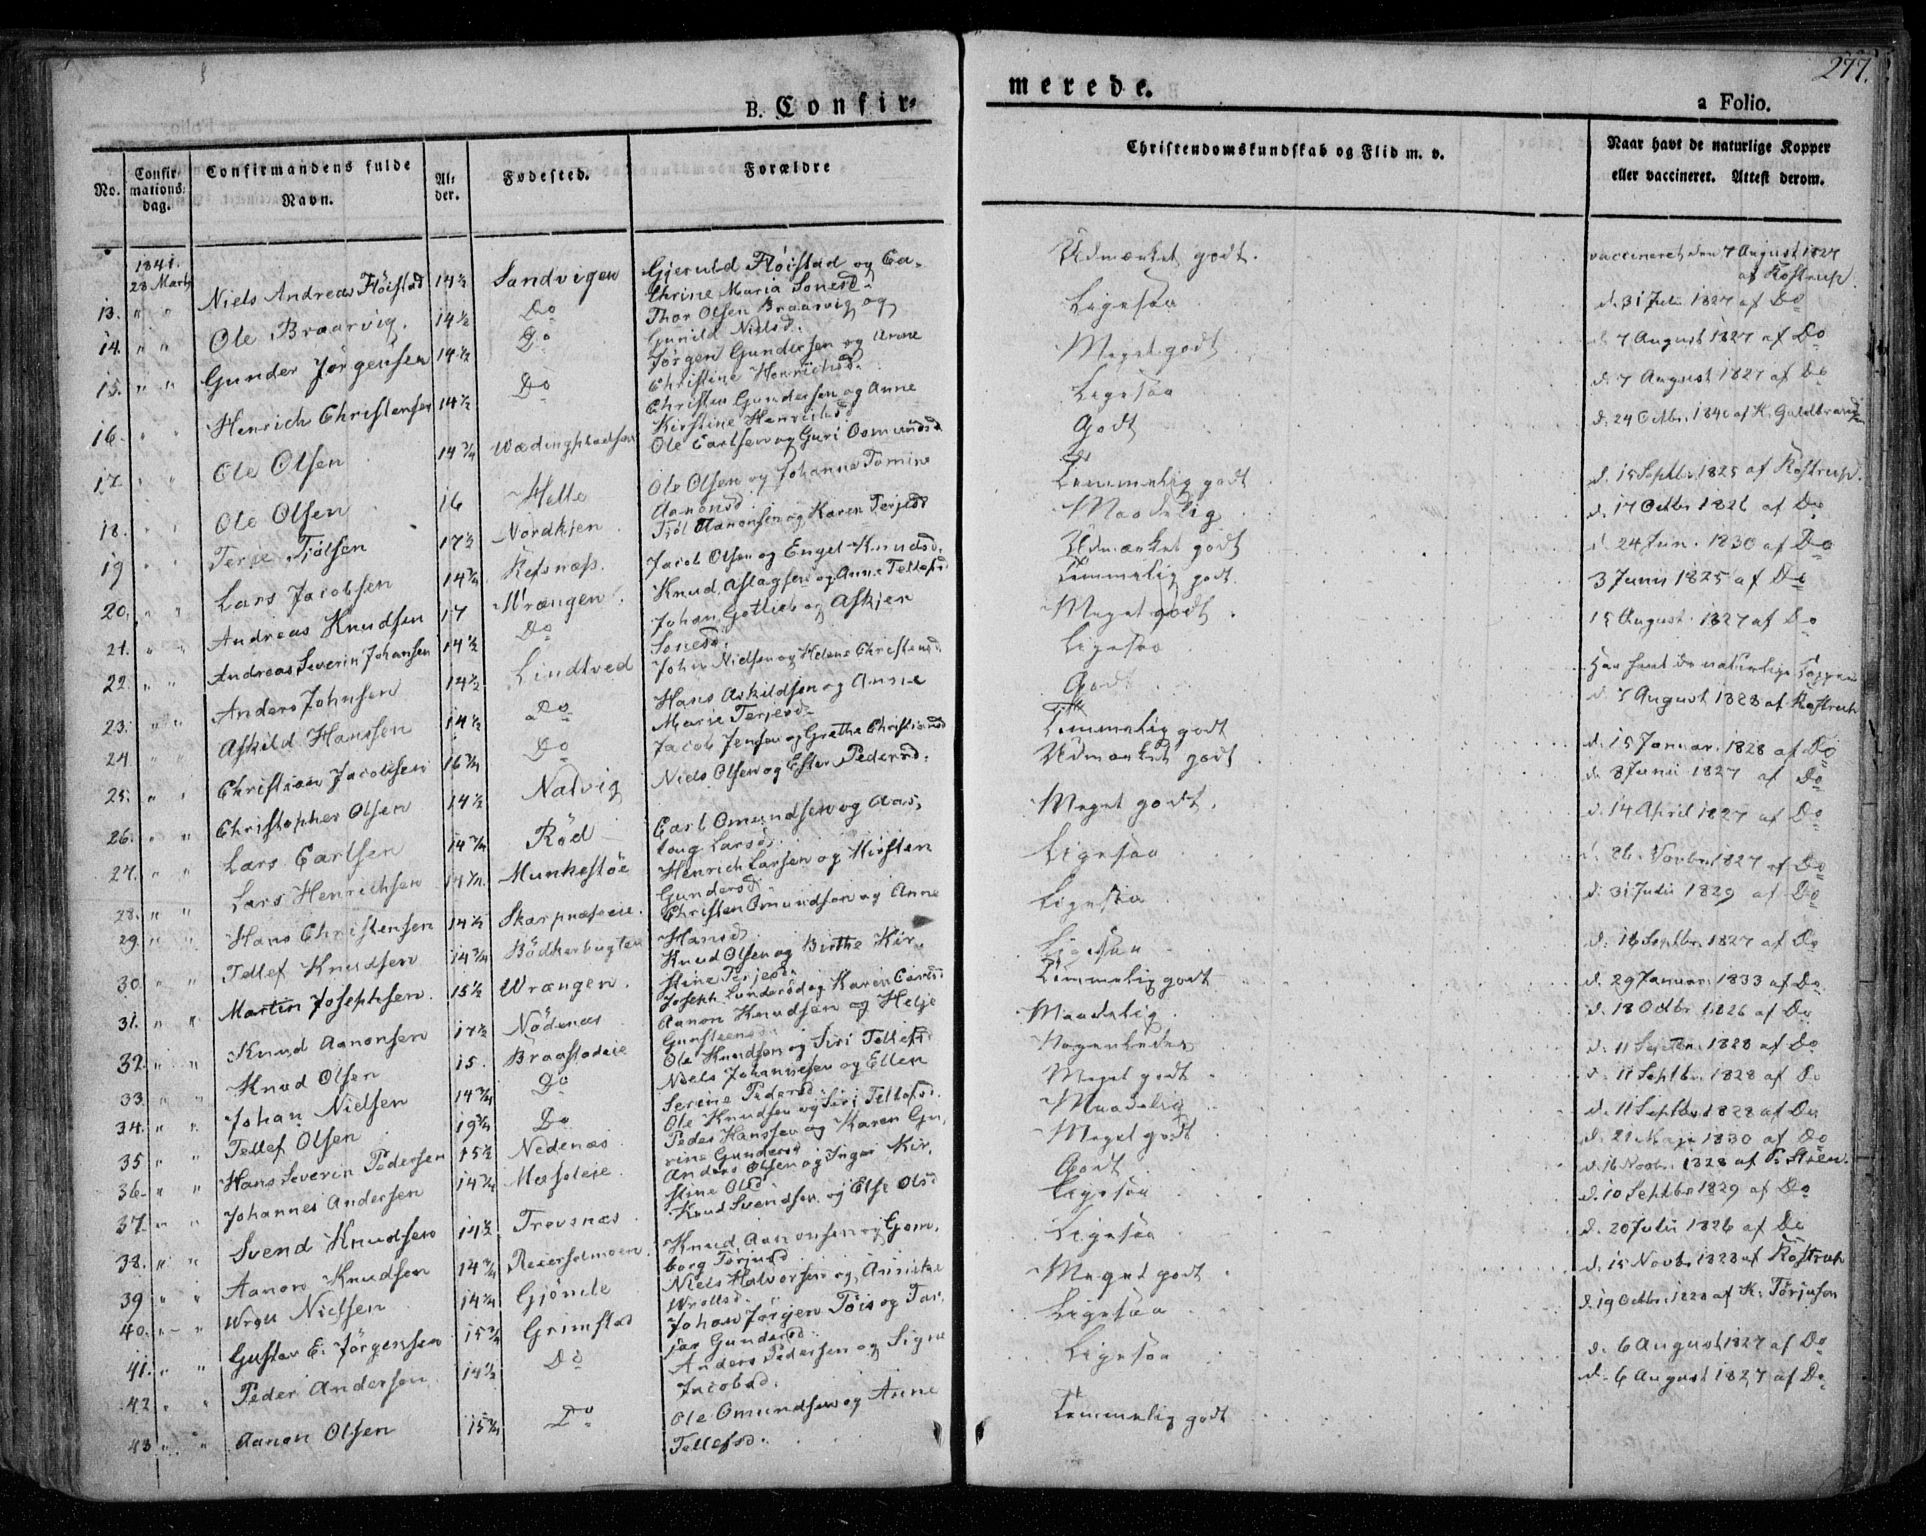 277.
B. Confir-
merede.
a Folio.
No.
Confir-
mations-
dag.
Confirmandens fulde
Navn.
Al-
der.
Fødested.
Forældre
Christendomskundskab og Flid m. v.
Naar havt de naturlige Kopper
eller vaccineret. Attest derom.
1841.
28 Marts Niels Andreas Flöistad 14½ Sandvigen Gjeruld Flöistad og Ca- Udmærket godt. vaccineret den 7 August 1827
thrine Maria Sonesd. af Rostrup.
13. " " Ole Braarvig. 14½ Do Thor Olsen Braarvig og Ligesaa d. 31 Juli 1827 af Do
Gunild Nielsd.
14. " " Gunder Jörgensen 14½ Do Jörgen Gundersen og Anne Meget godt d. 7 August 1827 af Do
Christine Henrichsd.
15. " " Henrich Christensen 14½ Do Christen Gundersen og Anne Ligesaa d. 7 August 1827 af Do
Kirstine Henrichsd
16. " " Ole Olsen 14¾ Ole Carlsen og Guri Osmundsd Godt d. 24 Octbr. 1840 af K. Guldbrandsen
17. " " Ole Olsen 16 Helle Ole Olsen og Johanne Tomine Temmelig godt d. 15 Septbr. 1825 af Rostrup.
Aanonsd.
18. " " Terje Tjölsen 17½ Nordkjen Tjöl Aanonsen og Karen Terjesd Maadelig d. 17 Octbr 1826 af Do
19 " " Lars Jacobsen 14¾ Refsnæss. Jacob Olsen og Engel Knudsd. Udmærket godt d. 24 Jun. 1830 af Do
20. " " Andreas Knudsen 17 Wrængen. Knud Aslagsen og Anne Tellefsd Temmelig godt. 3 Junii 1825 af Do
21. " " Andreas Severin Johansen 14½ Do Johan Gotlieb og Askjer Meget godt. 15 August 1827 af Do
Sonesd.
22. " " Anders Johnsen 14½ Lindtved John Nielsen og Helene Christensd Ligesaa Har havt de naturlige Kopper
23. " " Askild Hanssen 14½ Do Hans Askildsen og Anne Godt d. 7 August 1828 af Rostrup
Marie Terjesd.
24 " " Christian Jacobsen 16¾ Do Jacob Jensen og Grethe Christiansd Temmelig godt d. 15 Januar. 1828 af Do
25. " " Christopher Olsen 14½ Natvig Niels Olsen og Ester Pedersd. Udmærket godt d. 8 Junii 1827 af Do
26. " " Lars Carlsen 14¾ Röd Carl Omundsen og Aas- Meget godt. d. 14 April 1827 af Do
laug Larsd.
27. " " Lars Henrichsen Munkestöe Henrich Larsen og Kirsten Ligesaa d. 26 Novbr. 1827 af Do
Gundersd.
28. " " Hans Christensen 14½ Skarpnæseie. Christen Omundsen og Anne Ligesaa d. 31 Julii 1829 af Do
Hansd.
29. " " Tellef Knudsen 14¾ Bödkerbugten Knud Olsen og Birthe Kir- Ligesaa d. 16 Septbr. 1827 af Do
stine Terjesd.
30. " " Martin Josephsen. 15½ Wrængen. Joseph Gundersd og Karen Carlsd Temmelig godt d. 29 Januar. 1833 af Do.
31. " " Knud Aanonsen 17½ Nödenæs Aanon Knudsen og Helje Maadelig. d. 18 Octbr. 1826 af Do
Gunsteensd.
32. " " Knud Olsen 15. Braastadeie Ole Knudsen og Siri Tellefsd. Nogenledes d. 11 Septbr. 1828 af Do
33. " " Johan Nielsen 14¾ Do Niels Johannesen og Ellen Meget godt d. 11 Septbr. 1828 af Do
Serine Pedersd.
34. " " Tellef Olsen 19¾ Do Ole Knudsen og Siri Tellefsd. Maadelig d. 11 Septbr 1828 af Do
35 " " Hans Severin Pedersen 15½ Nedenæs Peder Hanssen og Karen Gu- Meget godt d. 21 Maji 1830 af Do
rine Gundersd
36. " " Johannes Andersen 14¾ Anders Olsen og Inger Kir- Godt d. 16 Novbr. 1828 af
stine Olsd
37. " " Svend Knudsen 14½ Trevsnæs Knud Svendsen og Else Olsd Ligesaa d. 10 Septbr 1829 af Do
38. " " Aanon Knudsen 14¾ Reiersølmoen Knud Aanonsen og Gom- Ligesaa d. 20 Julii 1826 af Do
borg Torjusd
39 " " Wroll Nielsen 14¾ Gjömle Niels Halvorsen og Anniche Meget godt d. 15 Novbr. 1828 af Rostrup
Wrollsd.
40. " " Gustav E. Jörgensen 15¾ Grimstad Johan Jörgen Töis og Tar- Ligesaa d. 19 Octbr. 1828 af K. Torjusson
jer Gundersd.
41. " " Peder Andersen 14½ Do Anders Pedersen og Signe Ligesaa d. 6 August 1827 af Do
Jacobsd.
42 " " d. 6 August 1827 af Do
43 " " Aanon Olsen 15¾ Do Ole Omundsen og Anne Temmelig godt
Tellefsd.